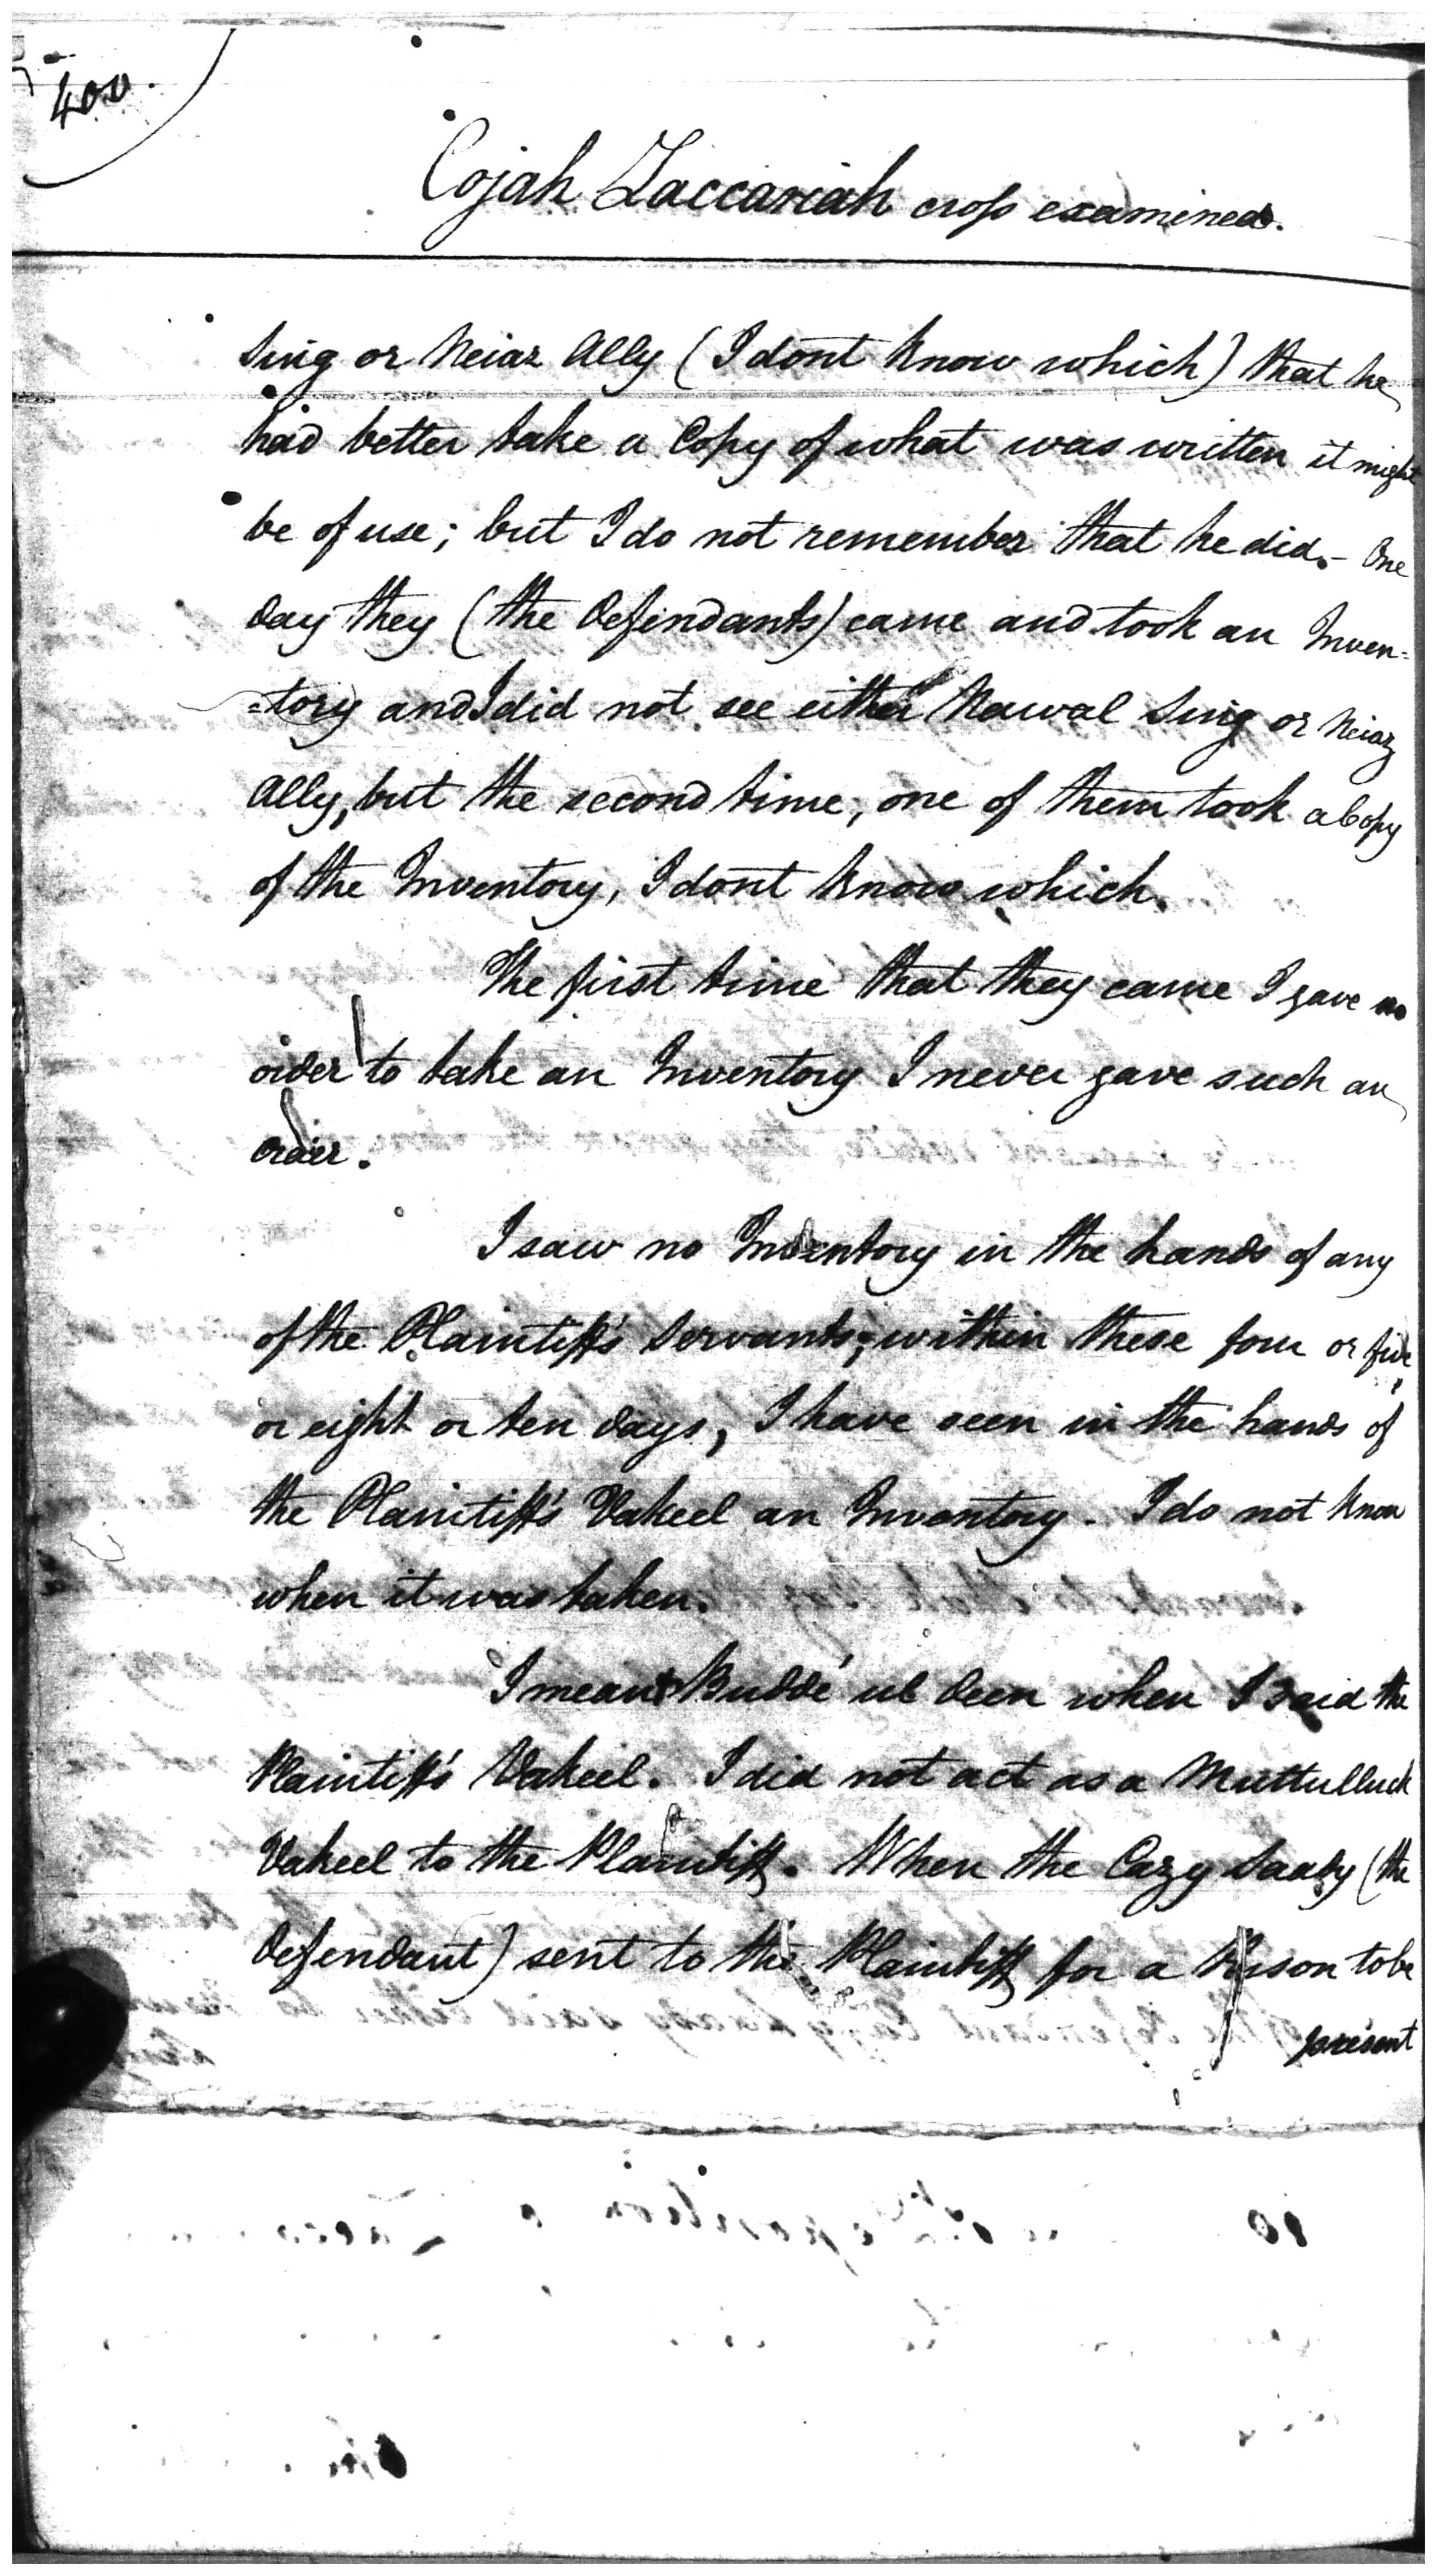 400.
Cojah Zaccariah cross examined.
Sing or Neiaz Ally (I dont know which) that he
had better take a Copy of what was written it might
be of use; but I do not remember that he did. - One
day they (the Defendants) came and took an Inven=
=tory and I did not see either Nawal Sing or Neiaz
Ally, but the second time, one of them took a Copy
of the Inventory, I dont know which.
The first time that they came I gave no
order to take an Inventory I never gave such an
order.
I saw no Inventory in the hands of any
of the Plaintiff's Servants; within these four or five
or eight or ten days, I have seen in the hands of
the Plaintiff's Vakeel an Inventory. I do not know
when it was taken.
I meant Buddé ul Deen when I said the
Plaintiff's Vakeel. I did not act as a Muttulluck
Vakeel to the Plaintiff. When the Cazy Saady (the
Defendant) sent to the Plaintiff for a Person to be
present